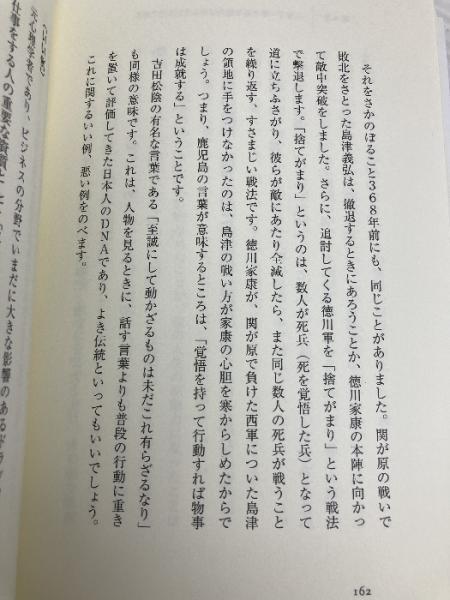 それをさかのぼること３６８年前にも、同じことがありました。関が原の戦いで
敗北をさとった島津義弘は、撤退するときにあろうことか、徳川家康の本陣に向かっ
て敵中突破をしました。さらに、追討してくる徳川軍を「捨てがまり」という戦法
で撃退します。「捨てがまり」というのは、数人が死兵（死を覚悟した兵）となって
道に立ちふさがり、彼らが敵にあたり全滅したら、また同じ数人の死兵が戦うこと
を繰り返す、すさまじい戦法です。徳川家康が、関が原で負けた西軍についた島津
の領地に手をつけなかったのは、島津の戦い方が家康の心胆を寒からしめたからで
しょう。つまり、鹿児島の言葉が意味するところは、「覚悟を持って行動すれば物事
は成就する」ということです。
吉田松陰の有名な言葉である「至誠にして動かざるものは未だこれ有らざるなり」
も同様の意味です。これは、人物を見るときに、話す言葉よりも普段の行動に重き
を置いて評価してきた日本人のＤＮＡであり、よき伝統といってもいいでしょう。
これに関するいい例、悪い例をのべます。
仕事をする人の重要な資質
学者であり、ビジネスの分野でいまだに大きな影響のあるドラッ
162